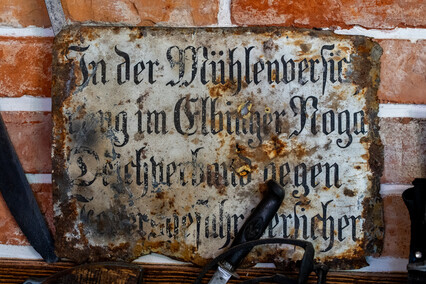 In der Mühlenversic
ung im Elbinger Noga
Deichverband gegen
Feuersgefahr versicher